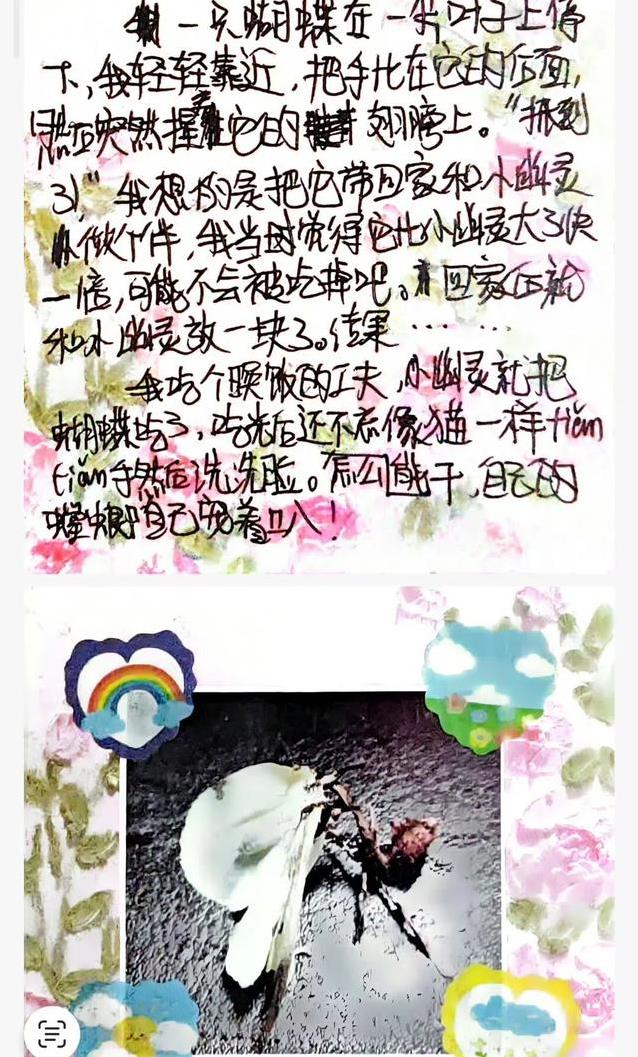 一只蝴蝶在一片叶子上停
下，我轻轻靠近，把手比在它的后面，
然后突然握在它的翅膀上。“抓到
了”，我想的是把它带回家和小幽灵
做个伴，我当时觉得它比小幽灵大了快
一倍，可能不会被吃掉吧。回家后就
和小幽灵放一块了。结果……
我吃个晚饭的工夫，小幽灵就把
蝴蝶吃了，吃完后还不忘像猫一样tiǎn
tiǎn手然后洗洗脸。怎么能干，自己的
自己
！